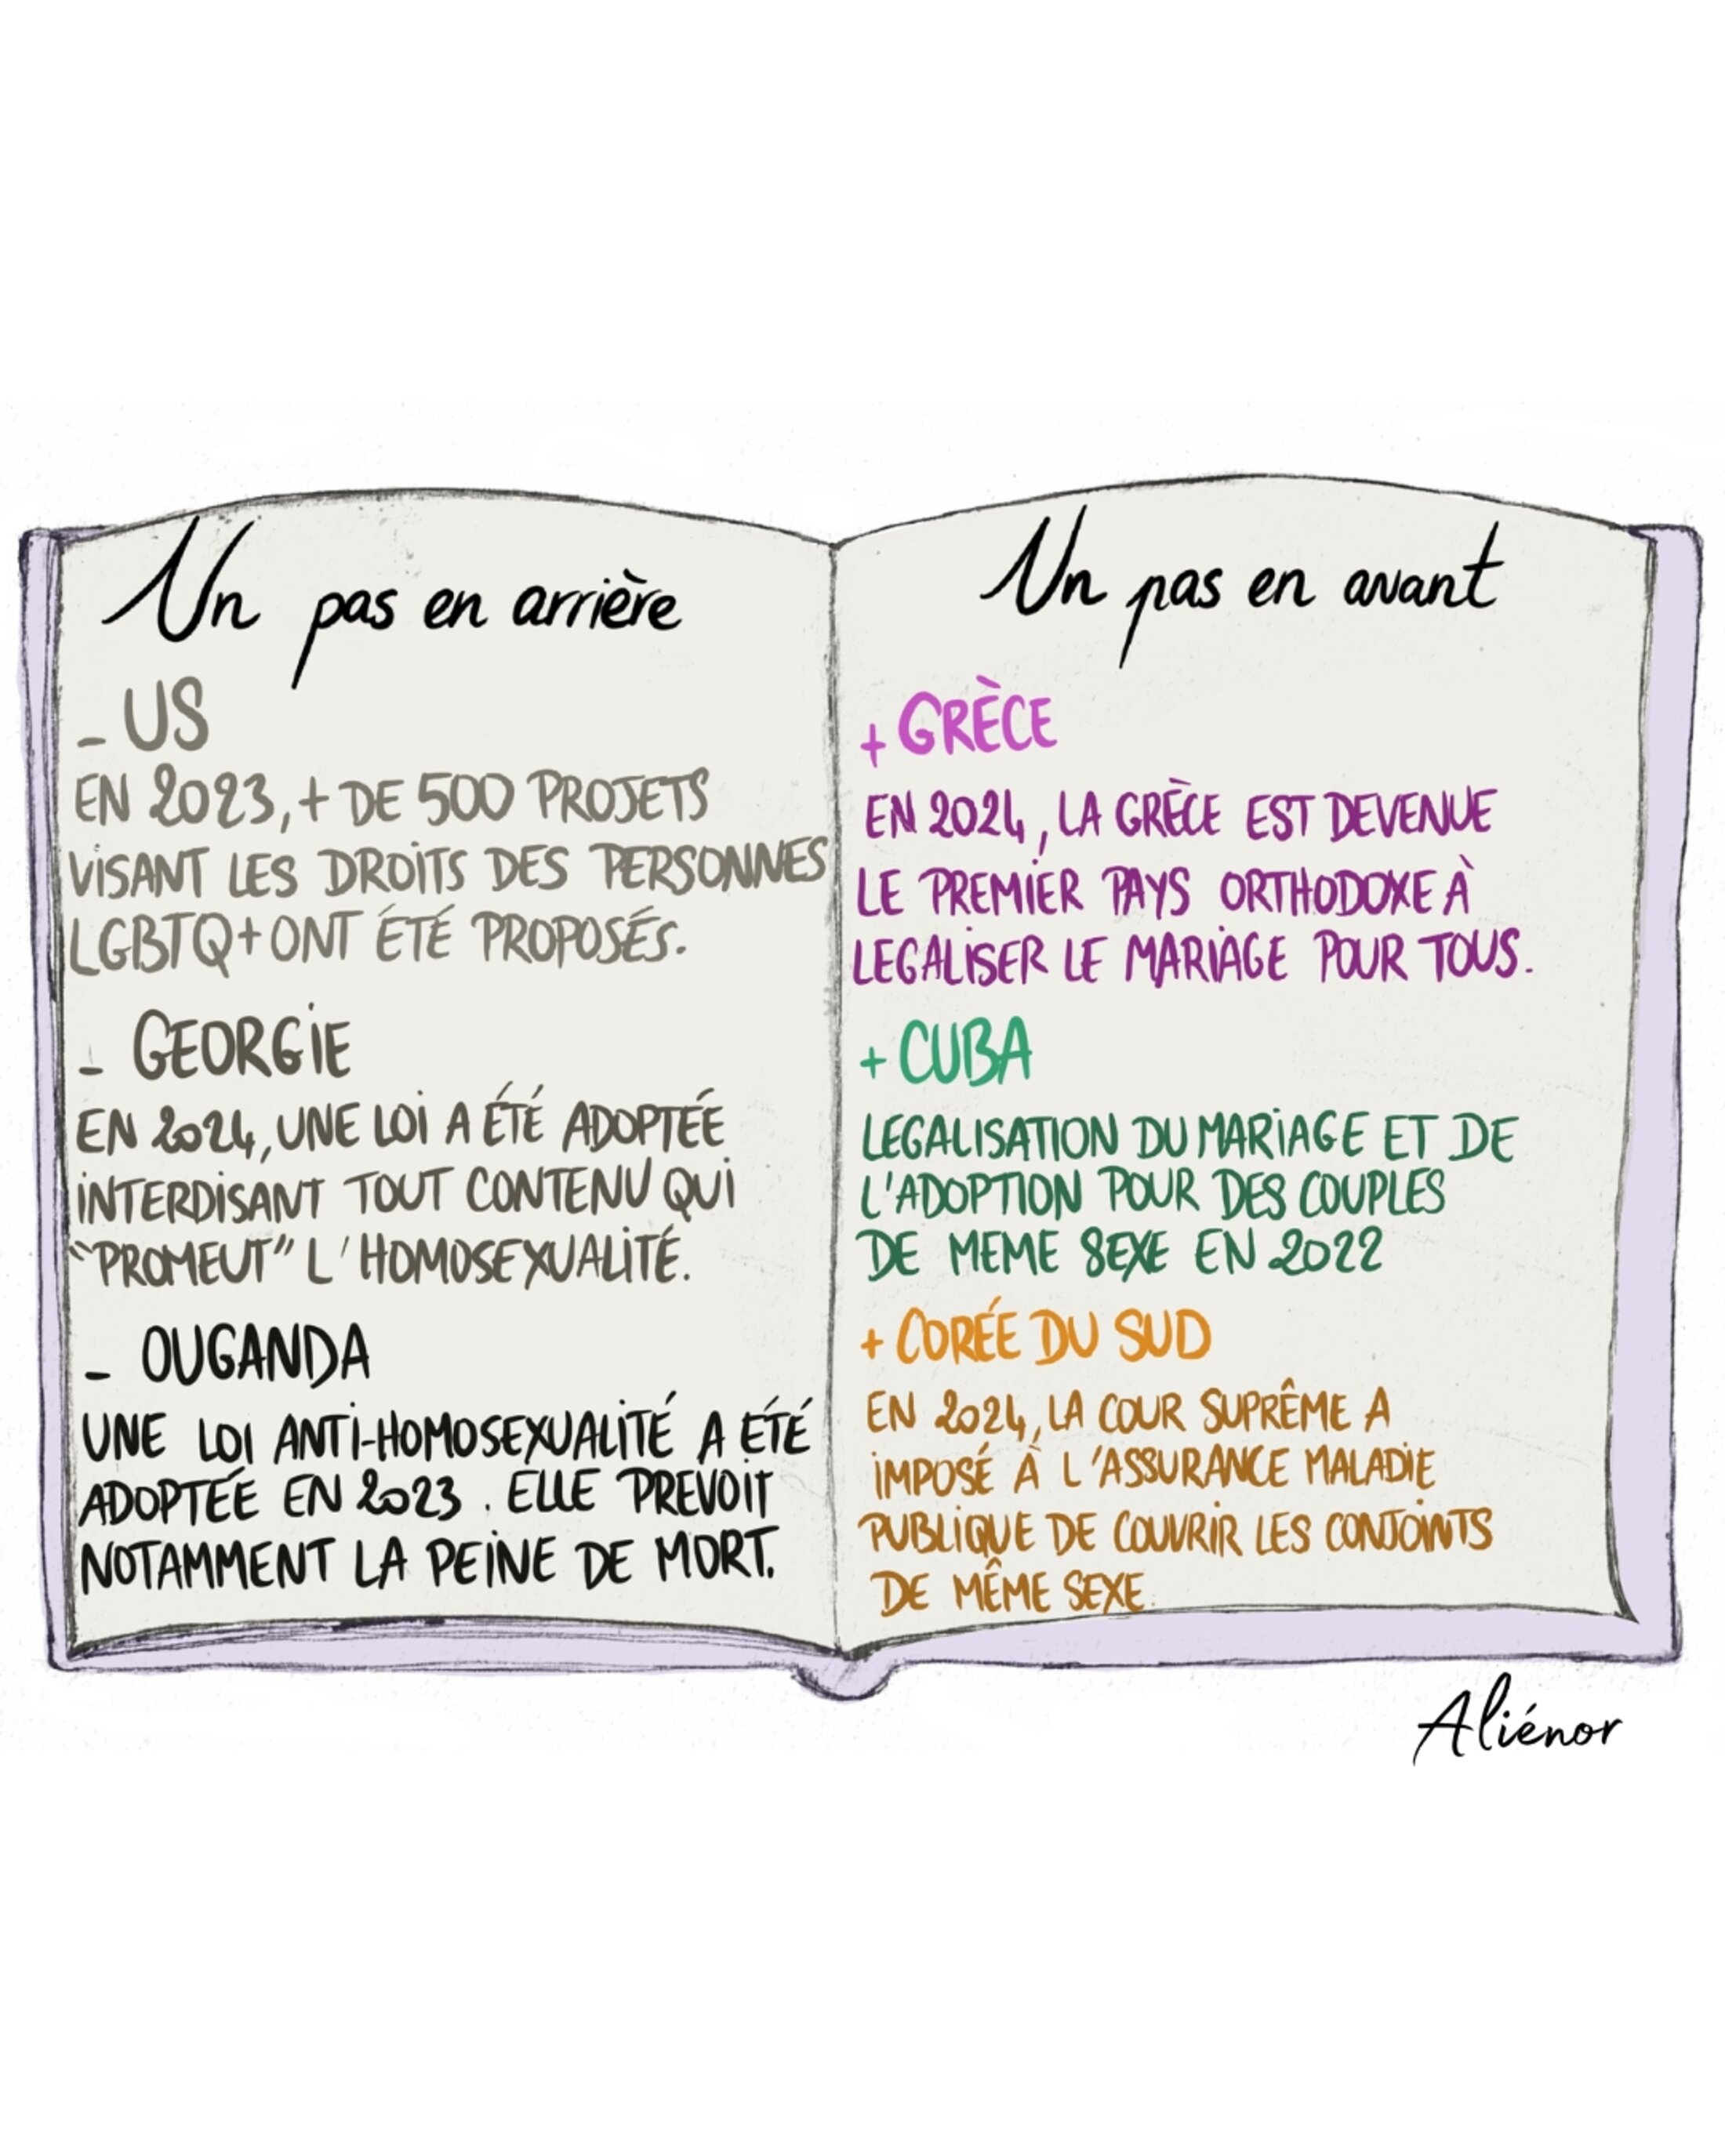 Un pas en arrière
- US
EN 2023, + DE 500 PROJETS
VISANT LES DROITS DES PERSONNES
LGBTQ+ ONT ÉTÉ PROPOSÉS.
- GEORGIE
EN 2024, UNE LOI A ÉTÉ ADOPTÉE
INTERDISANT TOUT CONTENU QUI
"PROMEUT" L'HOMOSEXUALITÉ.
- OUGANDA
UNE LOI ANTI-HOMOSEXUALITÉ A ÉTÉ
ADOPTÉE EN 2023. ELLE PREVOIT
NOTAMMENT LA PEINE DE MORT.
Un pas en avant
+ GRÈCE
EN 2024, LA GRÈCE EST DEVENUE
LE PREMIER PAYS ORTHODOXE À
LEGALISER LE MARIAGE POUR TOUS.
+ CUBA
LEGALISATION DU MARIAGE ET DE
L'ADOPTION POUR DES COUPLES
DE MEME SEXE EN 2022
+ CORÉE DU SUD
EN 2024, LA COUR SUPRÊME A
IMPOSÉ À L'ASSURANCE MALADIE
PUBLIQUE DE COUVRIR LES CONJOINTS
DE MÊME SEXE.
Aliénor